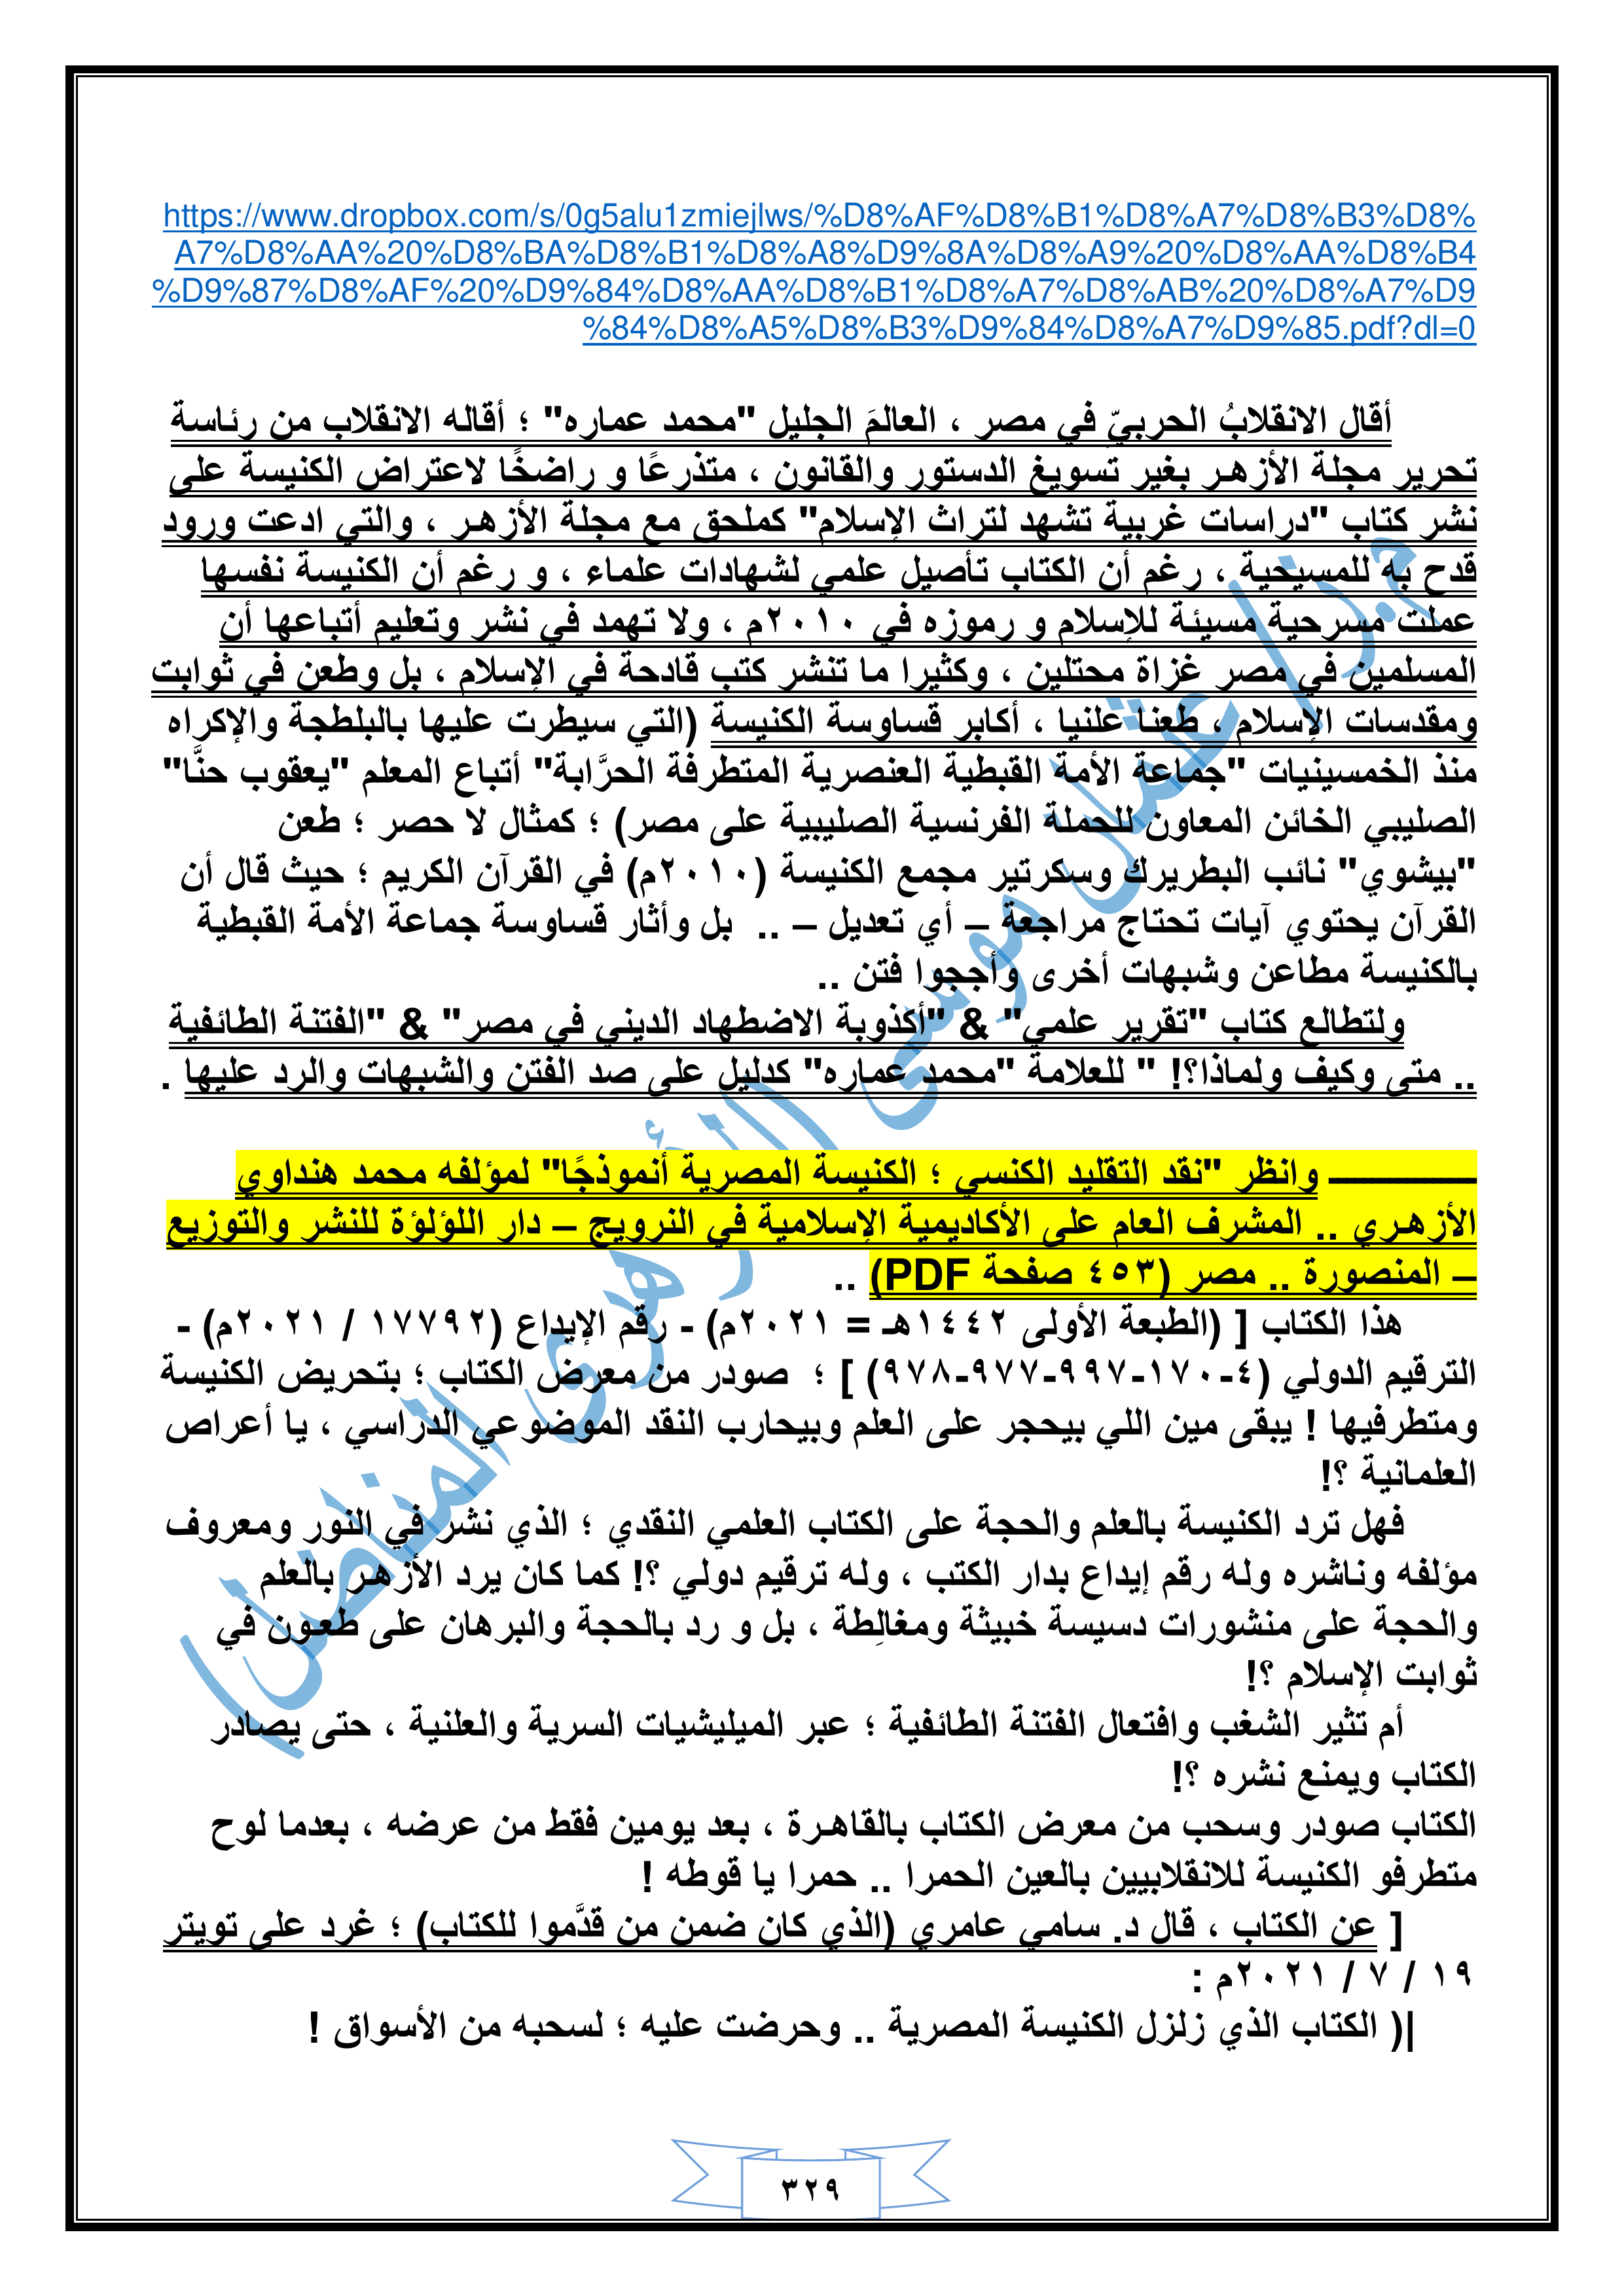 https://www.dropbox.com/s/0g5alu1zmiejlws/%D8%AF%D8%B1%D8%A7%D8%B3%D8%
A7%D8%AA%20%D8%BA%D8%B1%D8%A8%D9%8A%D8%A9%20%D8%AA%D8%B4
%D9%87%D8%AF%20%D9%84%D8%AA%D8%B1%D8%A7%D8%AB%20%D8%A7%D9
%84%D8%A5%D8%B3%D9%84%D8%A7%D9%85.pdf?dl=0
أقال الانقلابُ الحربيّ في مصر ، العالمَ الجليل "محمد عماره" ؛ أقاله الانقلاب من رئاسة
تحرير مجلة الأزهـر بغير تسويغ الدستور والقانون ، متذرعًا و راضخًا لاعتراض الكنيسة على
نشر كتاب "دراسات غربية تشهد لتراث الإسلام" كملحق مع مجلة الأزهـر ، والتي ادعت ورود
قدح به للمسيحية ، رغم أن الكتاب تأصيل علمي لشهادات علماء ، و رغم أن الكنيسة نفسها
عملت مسرحية مسيئة للإسلام و رموزه في ٢٠١٠م ، ولا تهمد في نشر وتعليم أتباعها أن
المسلمين في مصر غزاة محتلين ، وكثيرا ما تنشر كتب قادحة في الإسلام ، بل وطعن في ثوابت
ومقدسات الإسلام ، طعنا علنيا ، أكابر قساوسة الكنيسة (التي سيطرت عليها بالبلطجة والإكراه
منذ الخمسينيات "جماعة الأمة القبطية العنصرية المتطرفة الحرَّابة" أتباع المعلم "يعقوب حنَّا"
الصليبي الخائن المعاون للحملة الفرنسية الصليبية على مصر) ؛ كمثال لا حصر ؛ طعن
"بيشوي" نائب البطريرك وسكرتير مجمع الكنيسة (٢٠١٠م) في القرآن الكريم ؛ حيث قال أن
القرآن يحتوي آيات تحتاج مراجعة – أي تعديل – .. بل وأثار قساوسة جماعة الأمة القبطية
بالكنيسة مطاعن وشبهات أخرى وأججوا فتن ..
ولتطالع كتاب "تقرير علمي" & "أكذوبة الاضطهاد الديني في مصر" & "الفتنة الطائفية
.. متى وكيف ولماذا؟! " للعلامة "محمد عماره" كدليل على صد الفتن والشبهات والرد عليها .
ـــــــــــــ وانظر "نقد التقليد الكنسي ؛ الكنيسة المصرية أنموذجًا" لمؤلفه محمد هنداوي
الأزهـري .. المشرف العام على الأكاديمية الإسلامية في النرويج – دار اللؤلؤة للنشر والتوزيع
– المنصورة .. مصر (٤٥٣ صفحة PDF) ..
هذا الكتاب [ (الطبعة الأولى ١٤٤٢هـ = ٢٠٢١م) - رقم الإيداع (١٧٧٩٢ / ٢٠٢١م) -
الترقيم الدولي (٤-١٧٠-٩٩٧-٩٧٧-٩٧٨) ] ؛ صودر من معرض الكتاب ؛ بتحريض الكنيسة
ومتطرفيها ! يبقى مين اللي بيحجر على العلم وبيحارب النقد الموضوعي الدراسي ، يا أعراص
العلمانية ؟!
فهل ترد الكنيسة بالعلم والحجة على الكتاب العلمي النقدي ؛ الذي نشر في النور ومعروف
مؤلفه وناشره وله رقم إيداع بدار الكتب ، وله ترقيم دولي ؟! كما كان يرد الأزهـر بالعلم
والحجة على منشورات دسيسة خبيثة ومغالِطة ، بل و رد بالحجة والبرهان على طعـون في
ثوابت الإسلام ؟!
أم تثير الشغب وافتعال الفتنة الطائفية ؛ عبر الميليشيات السرية والعلنية ، حتى يصادر
الكتاب ويمنع نشره ؟!
الكتاب صودر وسحب من معرض الكتاب بالقاهـرة ، بعد يومين فقط من عرضه ، بعدما لوح
متطرفو الكنيسة للانقلابيين بالعين الحمرا .. حمرا يا قوطه !
[ عن الكتاب ، قال د. سامي عامري (الذي كان ضمن من قدَّموا للكتاب) ؛ غرد على تويتر
١٩ / ٧ / ٢٠٢١م :
|( الكتاب الذي زلزل الكنيسة المصرية .. وحرضت عليه ؛ لسحبه من الأسواق !
٣٢٩